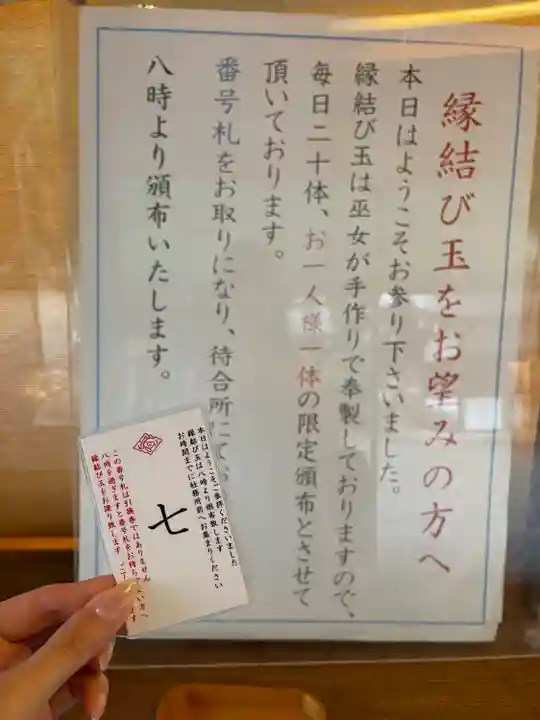 縁結び玉をお望みの方へ
本日はようこそお参り下さいました。
縁結び玉は巫女が手作りで奉製しておりますので、
毎日二十体、お一人様一体の限定頒布とさせて
頂いております。
番号札をお取りになり、待合所にてお
八時より頒布いたします。
本日はようこそご参拝くださいました
縁結び玉は八時より頒布致します
お時間までに社務所前へお集まりください
七
この番号札は引換券ではありません
八時を過ぎますと番号札をお持ちでない方へ
縁結び玉をお譲り致します